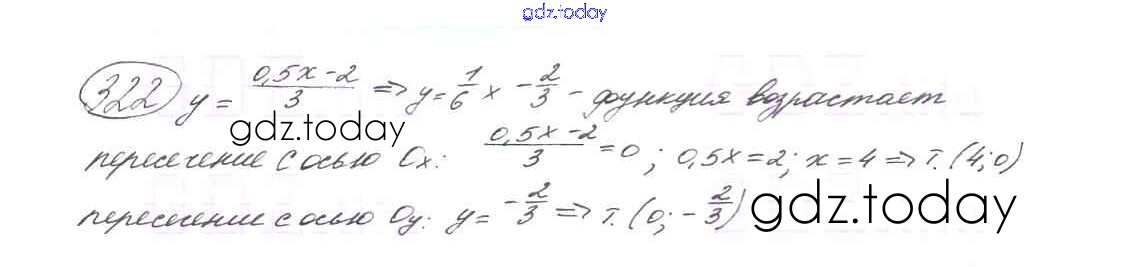 gdz.today
322 y = (0,5x-2)/3 => y = 1/6 x - 2/3 - функция возрастает
gdz.today
пересечение с осью Ox: (0,5x-2)/3 = 0; 0,5x=2; x=4 => т.(4;0)
пересечение с осью Oy: y= -2/3 => т.(0; -2/3)
gdz.today